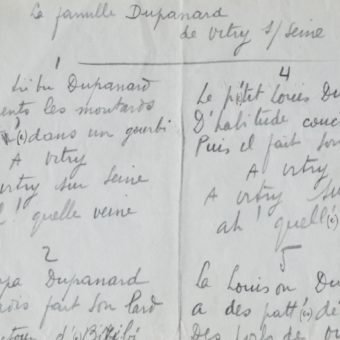 La famille Dupanard
de Vitry s/ Seine
1
tribu Dupanard
les moutards
dans un gourbi
A Vitry
Vitry sur Seine
! quelle veine
2
Dupanard
fait son lard
4
Le p'tit Louis Du
D'habitude couc
Puis il fait son
A Vitry
A Vitry su
ah ! quell(e)
5
La Louison Du
a des patt(es) dé
Des poils de